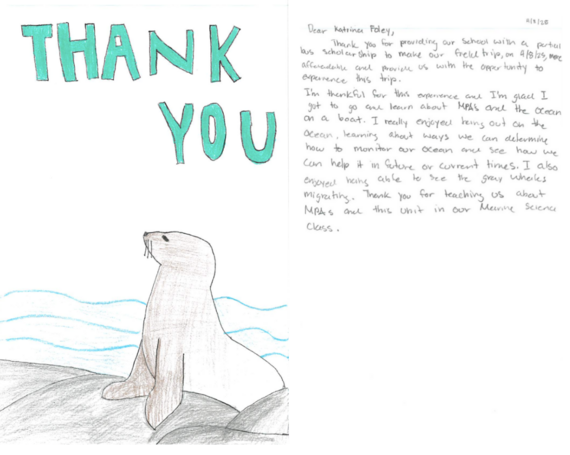 THANK
YOU
Dear Katrina Poley,
Thank you for providing our school with a partial
bus scholarship to make our field trip, on 4/8/25, more
affordable and provide us with the opportunity to
experience this trip.
I'm thankful for this experience and I'm glad I
got to go and learn about MPAs and the ocean
on a boat. I really enjoyed being out on the
ocean, learning about ways we can determine
how to monitor our ocean and see how we
can help it in future or current times. I also
enjoyed being able to see the gray whales
migrating. Thank you for teaching us about
MPAs and this unit in our Marine Science
Class.